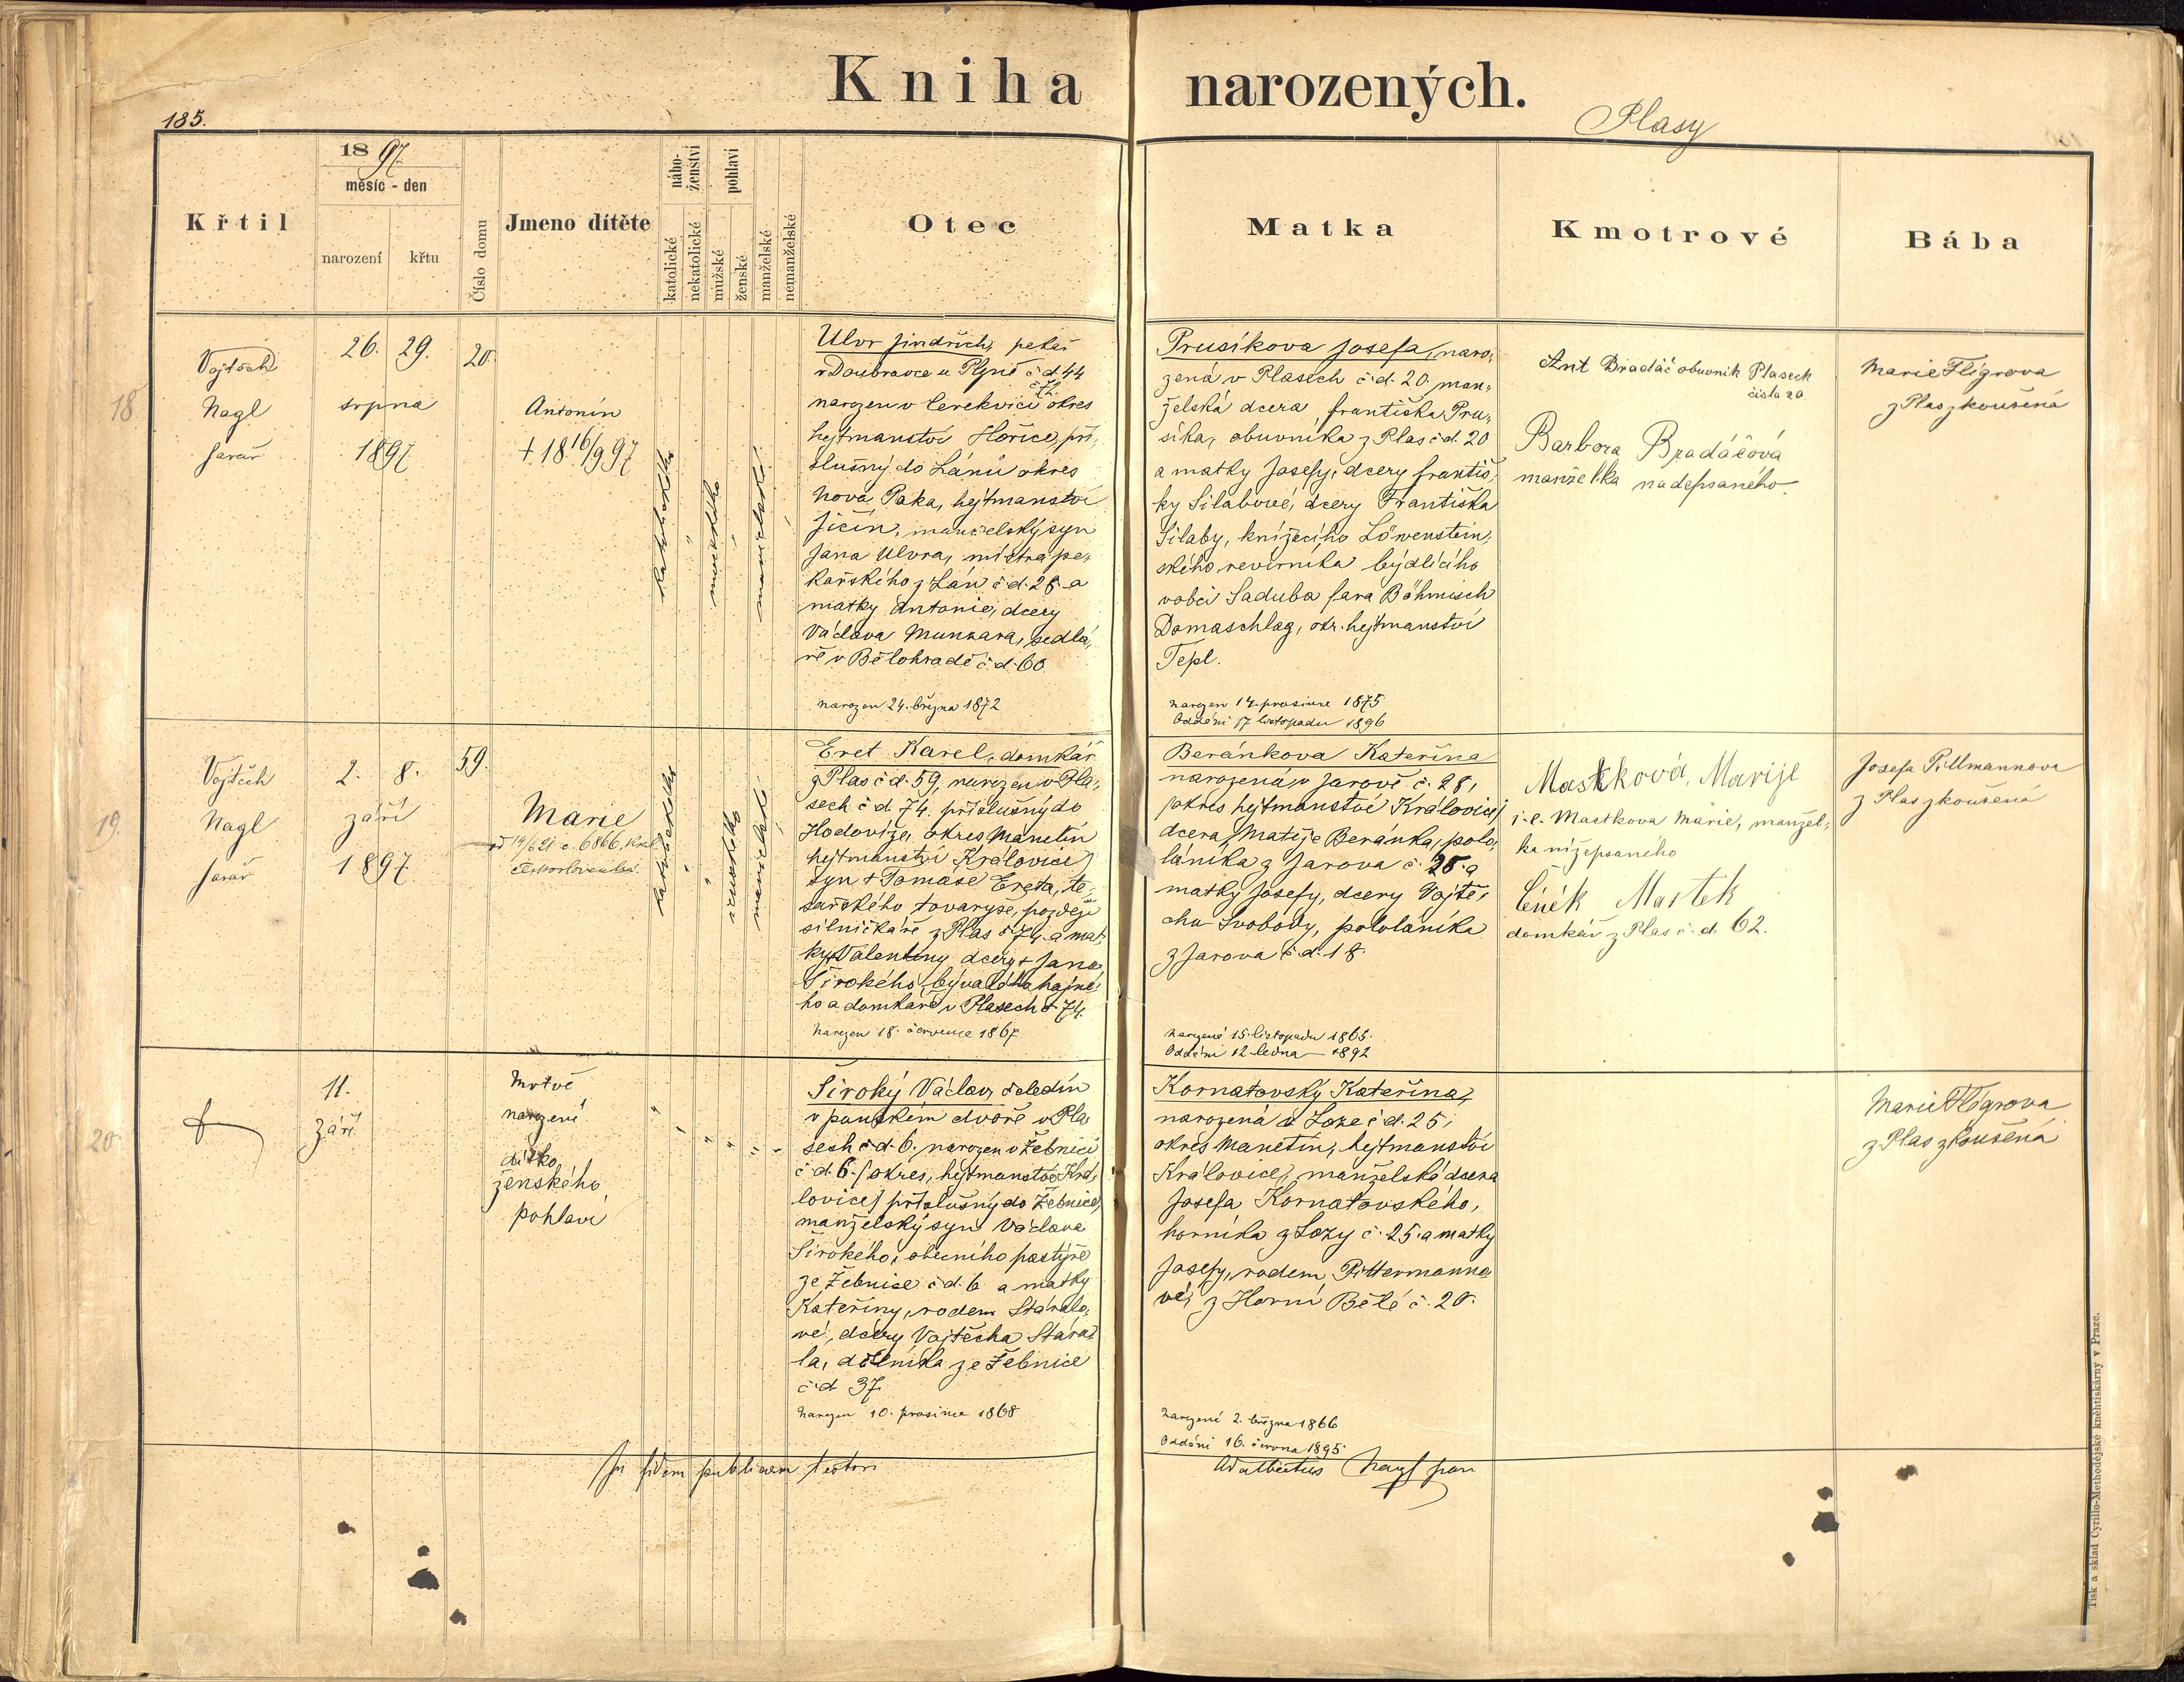 Kniha narozených.
185.
Plasy
1897
měsíc - den
Křtil
narození
křtu
Číslo domu
Jmeno dítěte
nábo-
ženství
katolické
nekatolické
pohlaví
mužské
ženské
manželské
nemanželské
Otec
Matka
Kmotrové
Bába
18.
Vojtěch
Nagl
farář
26. 29.
srpna
1897
20.
Antonín
+ 18 16/9 97
katolického
mužského
manželské
Ulvr Jindřich, pekař
v Doubravce u Plzně č.d. 44
narozen v Cerekvici okres
hejtmanství Hořice, pří-
slušný do Lánů okres
Nová Paka, hejtmanství
Jičín, manželský syn
Jana Ulvra, mistra pe-
kařského z Lán č.d. 28 a
matky Antonie, dcery
Václava Munzara, sedlá-
ře v Bělohradě č.d. 60
narozen 24. března 1872
Prusíkova Josefa, naro-
zená v Plasech č.d. 20. man-
želská dcera Františka Pru-
síka, obuvníka z Plas č.d. 20
a matky Josefy, dcery Františ-
ky Silabové, dcery Františka
Silaby, knížecího Löwenstein-
ského revírníka bydlícího
v obci Saduba fara Böhmisch
Domaschlag, okr. hejtmanství
Tepl.
narozen 14. prosince 1875
Oddáni 17 listopadu 1896
Ant Bradáč obuvník Plaseck
čísla 20.
Barbora Bradáčová
manželka nadepsaného.
Marie Fligrova
z Plas zkoušená
19.
Vojtěch
Nagl
farář
2. 8.
září
1897
59.
Marie
14/6 21 č. 6866
katolického
ženského
manželské
Eret Karel, domkář
z Plas č.d. 59, narozen v Pla-
sech č.d. 74. příslušný do
Hodovíze, okres Manetín
hejtmanství Kralovice
syn + Tomáše Ereta, te-
sařského tovaryše, později
silničkáře z Plas č 74. a mat-
ky + Valentiny dcery + Jana
Širokého, bývalého hajné-
ho a domkáře v Plasech č 74.
narozen 18. července 1867
Beránkova Kateřina
narozená v Jarově č. 28,
okres hejtmanství Kralovice
dcera Matěje Beránka, polo-
láníka z Jarova č. 28. a
matky Josefy, dcery Vojtě-
cha Svobody, pololáníka
z Jarova č.d. 18.
narozená 15. listopadu 1865.
Oddáni 12. ledna 1892
Mastková, Marije
i.e. Mastkova Marie, manžel-
ka nížepsaného
Čeněk Mastek
domkář z Plas č.d. 62.
Josefa Pillmannova
z Plas zkoušená
20.
11.
září
Mrtvě
narozené
dítko
ženského
pohlaví
Široký Václav, čeledín
v panském dvoře v Pla
sech č.d. 6. narozen v Žebnici
č.d. 6. (okres, hejtmanství Kra-
lovice) příslušný do Žebnice,
manželský syn Václava
Širokého, obecního pastýře
ze Žebnice č.d. 6 a matky
Kateřiny, rodem Stáralo-
vé, dcery Vojtěcha Stára-
la, dělníka ze Žebnice
č.d 37.
narozen 10. prosince 1868
Kornatovský Kateřina,
narozená v Loze č.d. 25,
okres Manetín, hejtmanství
Kralovice, manželská dcera
Josefa Kornatovského,
horníka z Lozy č. 25. a matky
Josefy, rodem Pittermanno-
vé, z Horní Bělé č. 20.
narozená 2. března 1866
Oddáni 16. června 1895
Marie Fligrova
z Plas zkoušená
In fidem publicam testor
Adalbertus Nagl
Tisk a sklad Cyrillo-Methodějské knihtiskárny v Praze.